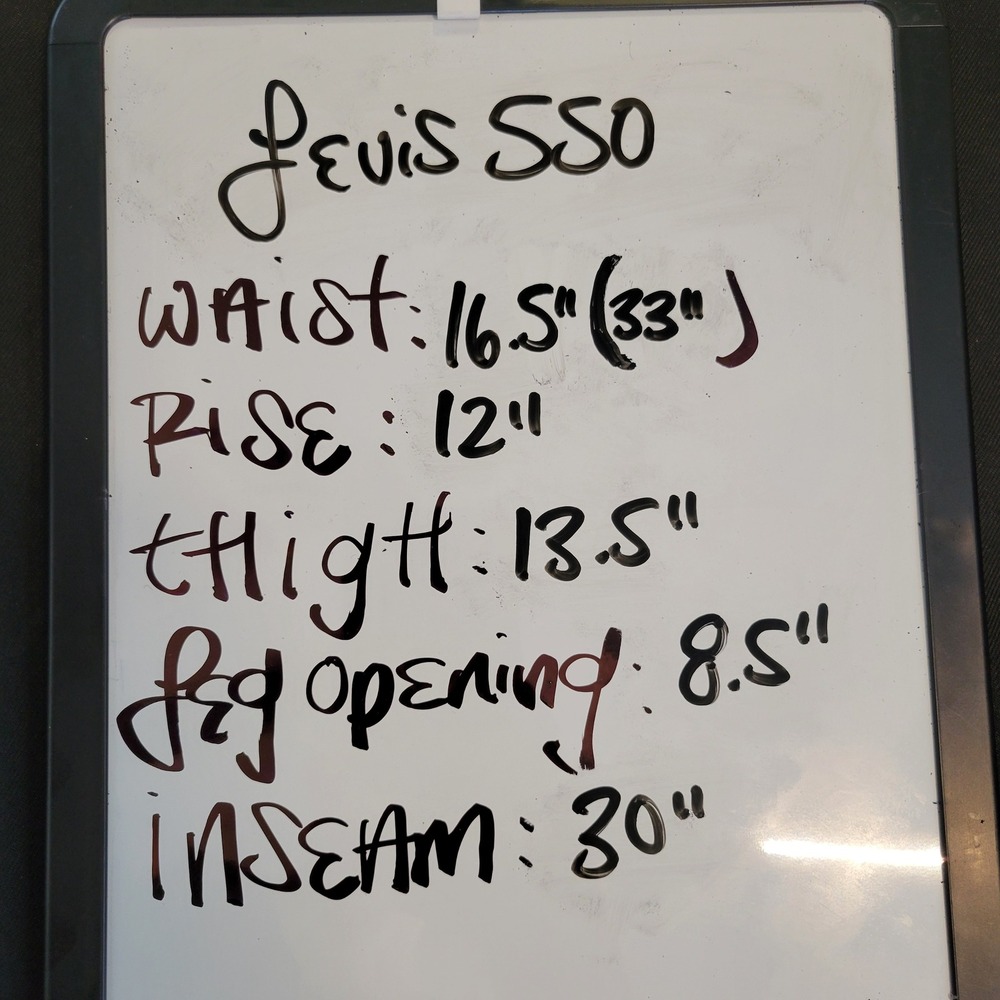 Levis 550
WAIST: 16.5" (33")
RiSE: 12"
tHigH: 13.5"
Leg opening: 8.5"
iNSEAM: 30"